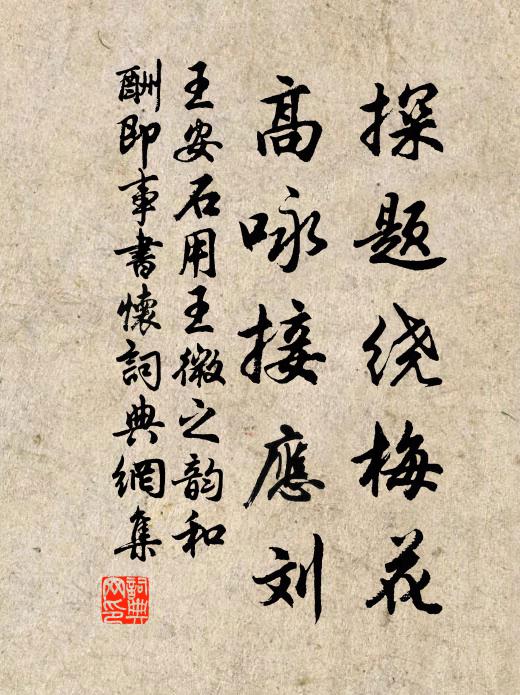 探题绕梅花
高咏接應刘
王安石用王徽之韵和
酬即事書懷詞典網集
詞典网印